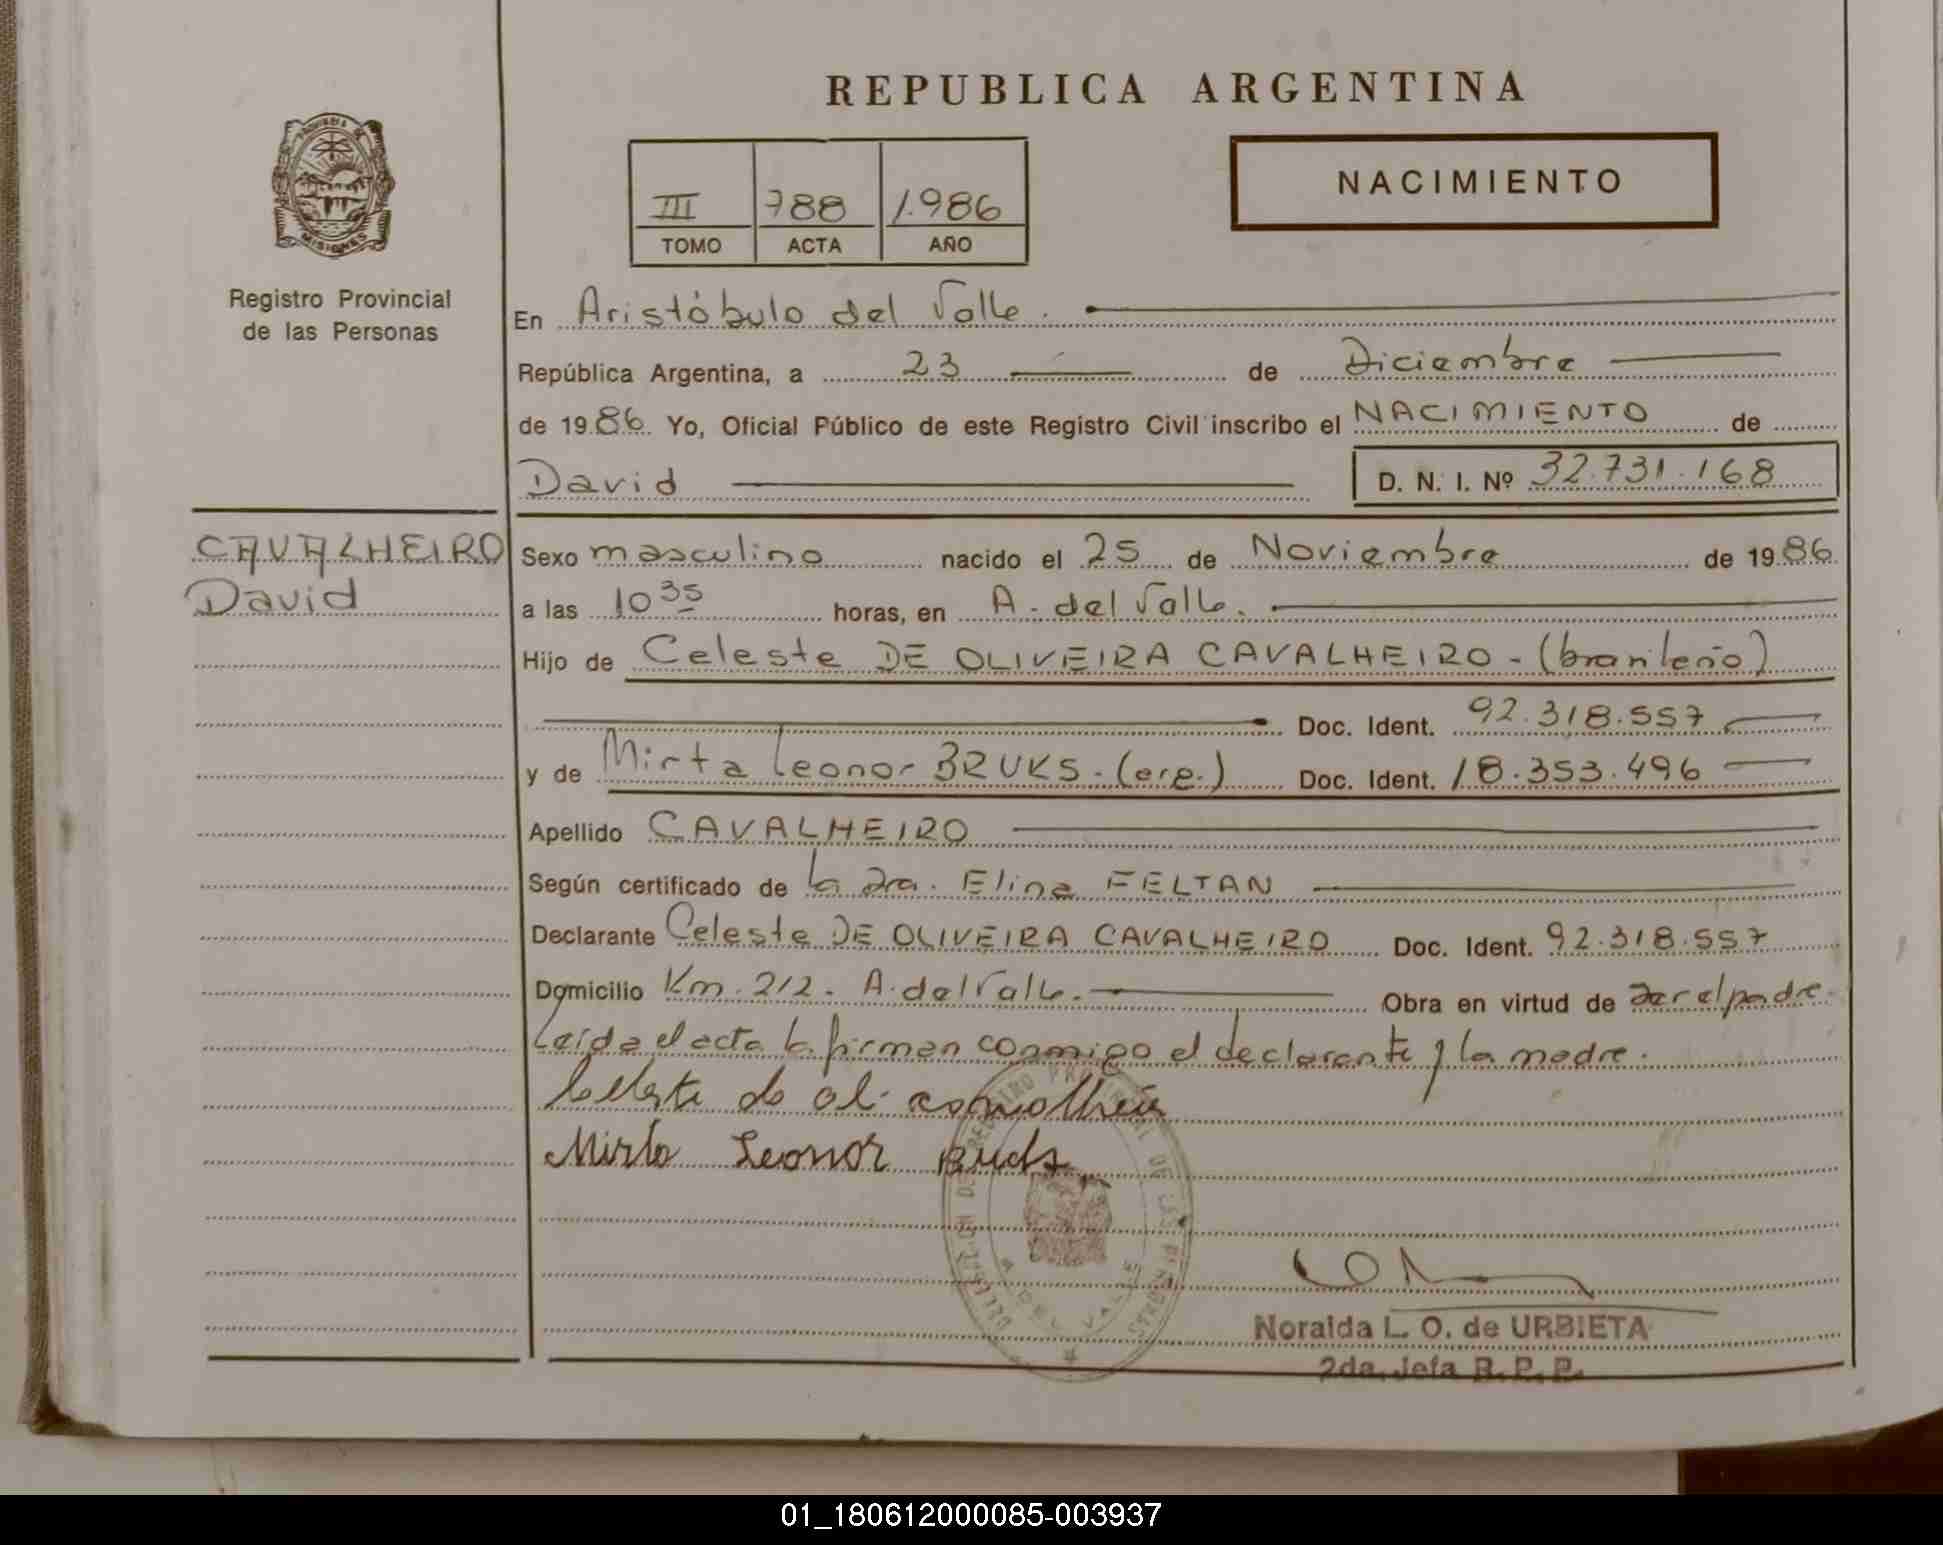 REPUBLICA ARGENTINA
PROVINCIA DE
MISIONES
Registro Provincial
de las Personas
III 788 1.986
TOMO ACTA AÑO
NACIMIENTO
En Aristóbulo del Valle.
República Argentina, a 23 de Diciembre
de 1986. Yo, Oficial Público de este Registro Civil inscribo el NACIMIENTO de
David D. N. I. Nº 32.731.168
CAVALHEIRO
David
Sexo masculino nacido el 25 de Noviembre de 1986
a las 10 35 horas, en A. del Valle.
Hijo de Celeste DE OLIVEIRA CAVALHEIRO - (brasileño)
Doc. Ident. 92.318.557
y de Mirta Leonor BRUKS. (arg.) Doc. Ident. 18.353.496
Apellido CAVALHEIRO
Según certificado de la Dra. Elina FELTAN
Declarante Celeste DE OLIVEIRA CAVALHEIRO Doc. Ident. 92.318.557
Domicilio Km. 212. A. del Valle. Obra en virtud de ser el padre
Leída el acta la firman conmigo el declarante y la madre.
Celeste de ol.
Mirta Leonor
DELEGACION DE REGISTRO PROVINCIAL DE LAS PERSONAS
A. DEL VALLE
Noraida L. O. de URBIETA
2da. Jefa R. P. P.
01_180612000085-003937